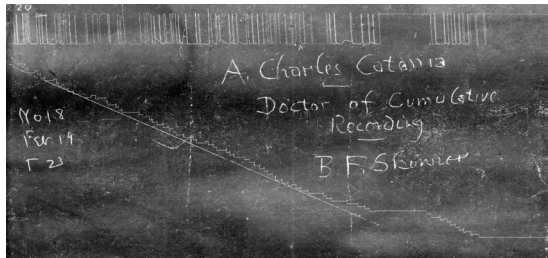 20
A. Charles Catania
Doctor of Cumulative
Recording
B. F. Skinner
No 18